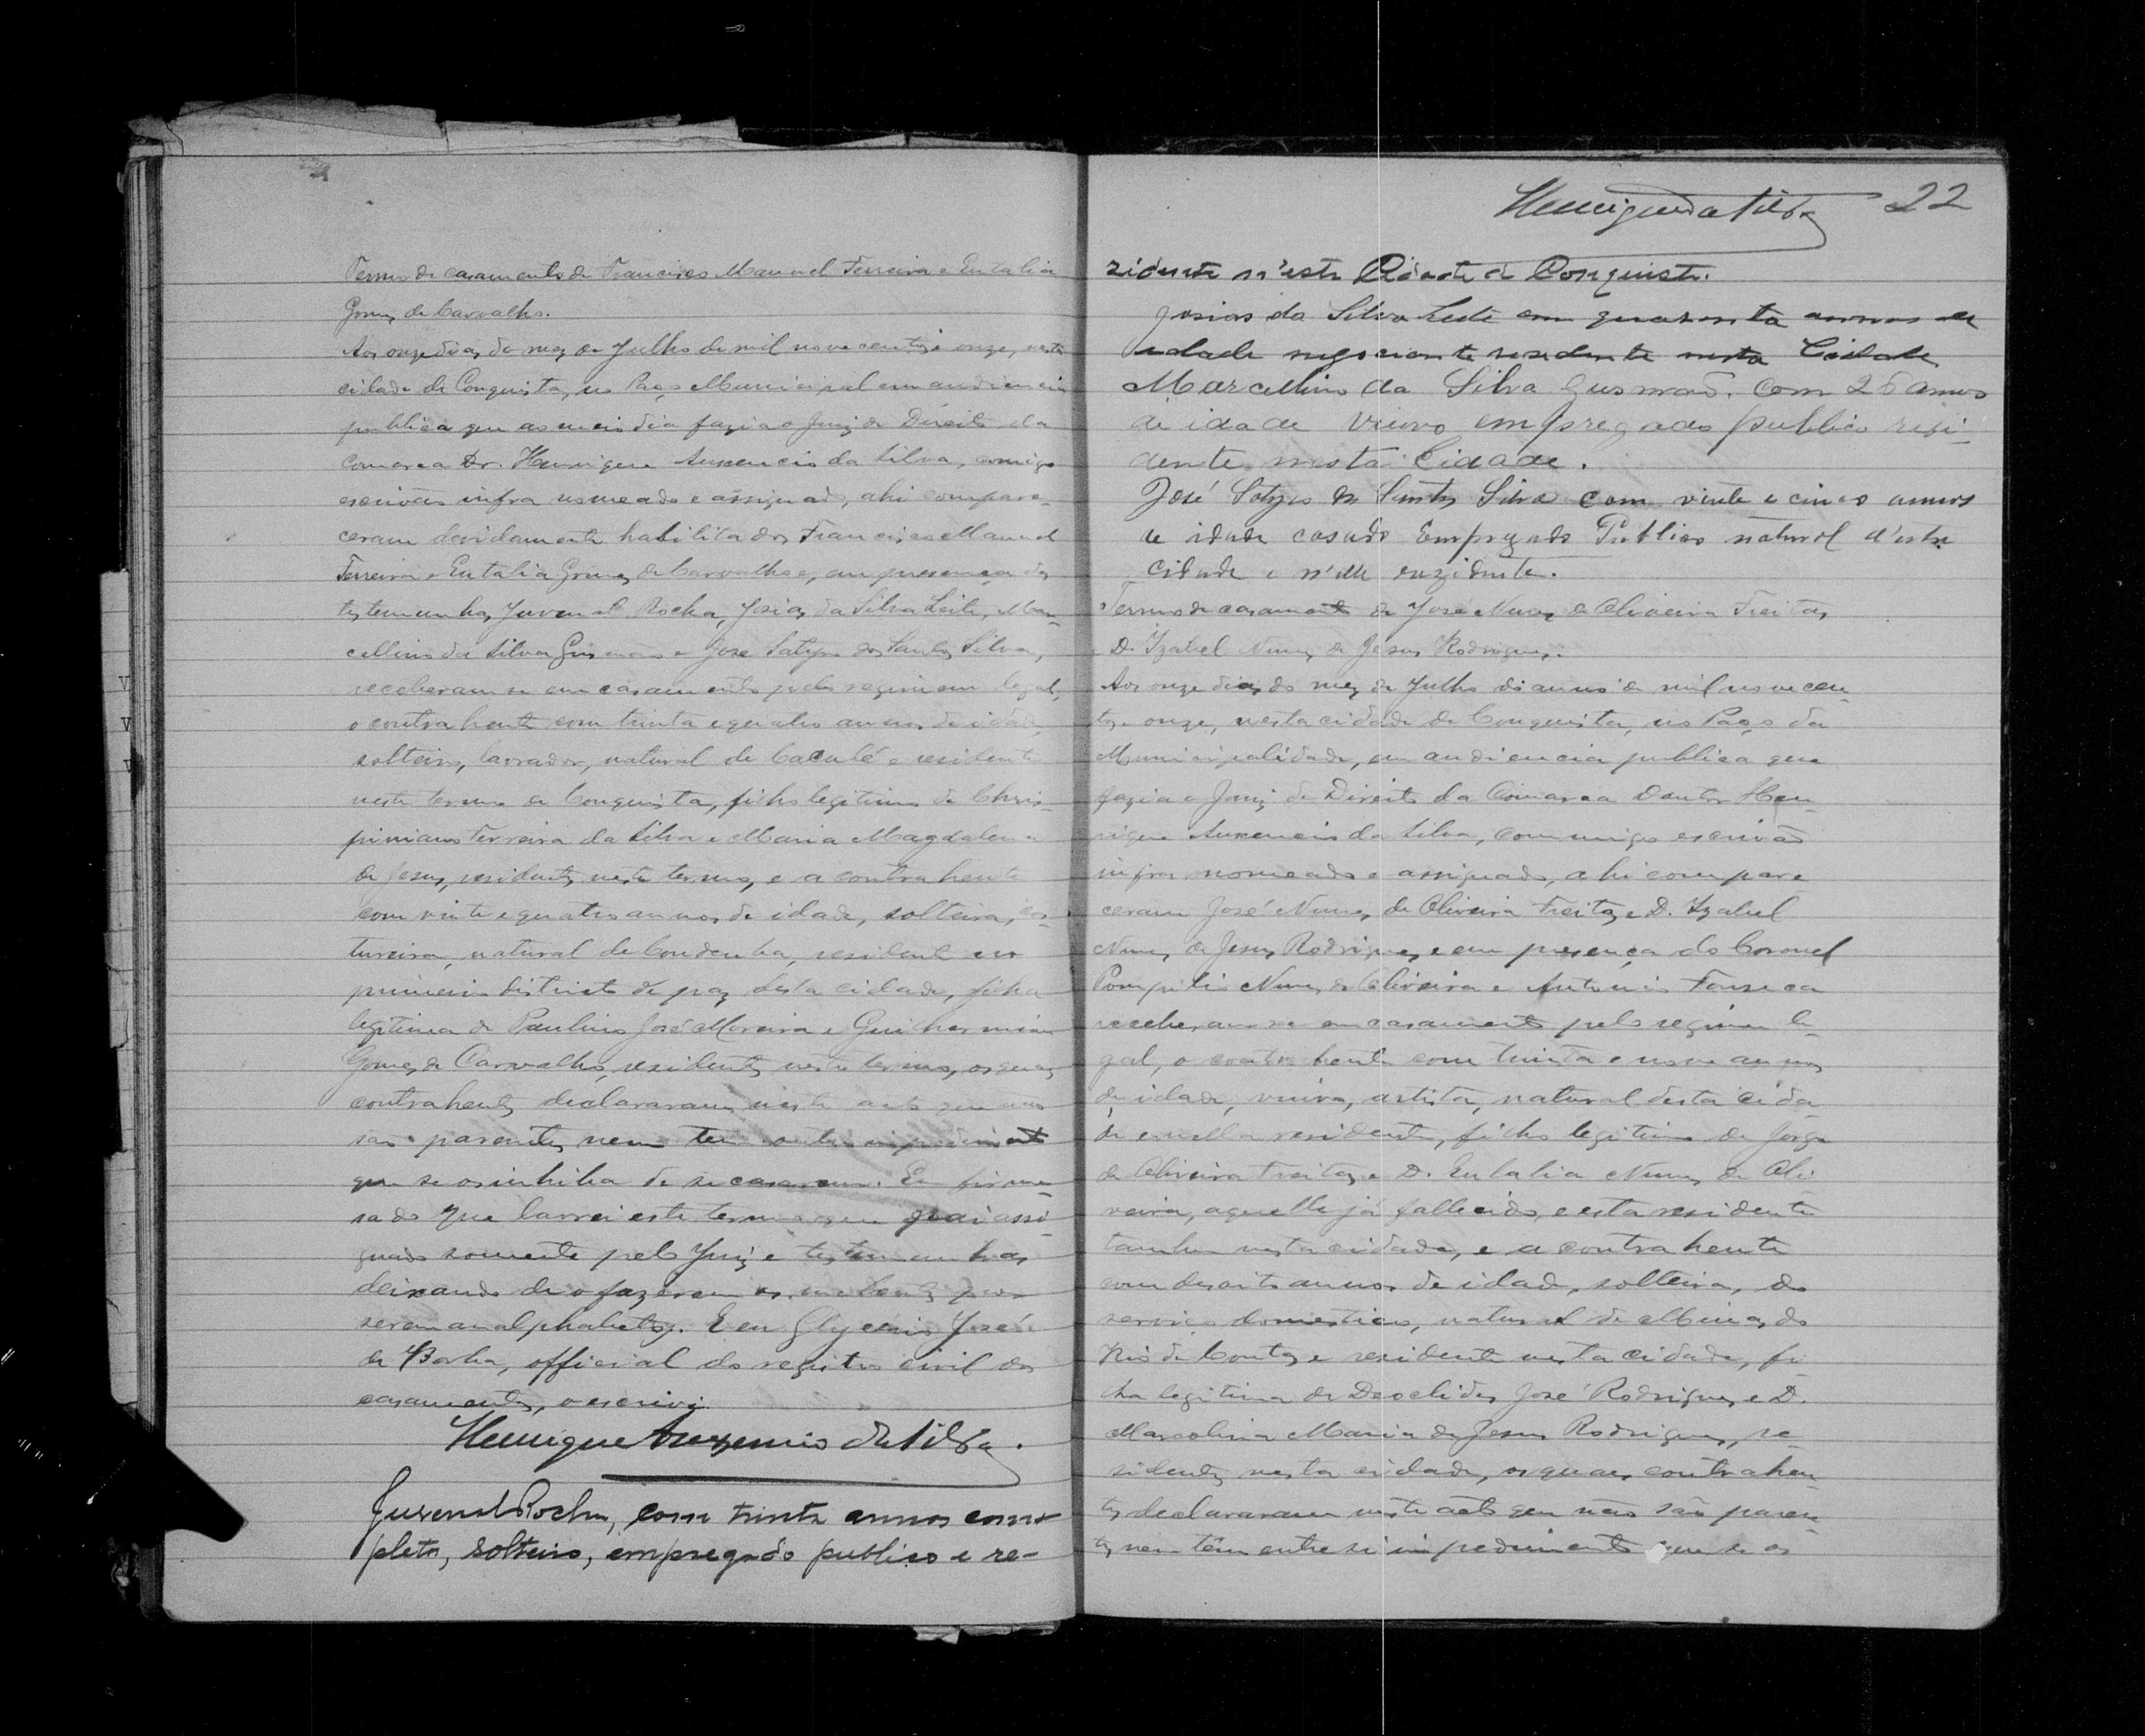 Termo de casamento de Francisco Manuel Ferreira e Eutalia
Gomes de Carvalho.
Aos onze dias do mez de Julho de mil novecentos e onze, nesta
cidade de Conquista, no Paço Municipal em audiencia
publica que ao meio dia fazia o Juiz de Direito da
comarca Dr. Henrique Auxencio da Silva, comigo
escrivão infra nomeado e assignado, ahi compare-
ceram devidamente habilitados Francisco Manuel
Ferreira e Eutalia Gomes de Carvalho e, em presença das
testemunhas Juvenal Rocha, Josias da Silva Leite, Mar-
cellino da Silva Gusmão e José Satyro dos Santos Silva,
receberam-se em casamento pelo regimem legal,
o contrahente com trinta e quatro annos de idade,
solteiro, lavrador, natural de Caculé e residente
neste termo de Conquista, filho legitimo de Chris-
piniano Ferreira da Silva e Maria Magdalena
de Jesus, residentes neste termo, e a contrahente
com vinte e quatro annos de idade, solteira, cos-
tureira, natural de Condeuba, residente no
primeiro districto de paz desta cidade, filha
legitima de Paulino José Moreira e Guilhermina
Gomes de Carvalho, residentes neste termo, os quaes
contrahentes declararam neste acto que não
são parentes nem tem outro impedimento
que se os inhiba de se casarem. Em firme-
sa do que lavrei este termo que vai assi-
gnado somente pelo Juiz e testemunhas
deixando de o fazerem os nubentes por
serem analphabetos. E eu Glycerio José
da Rocha, official do registro civil dos
casamentos, o escrivi.
Henrique Auxencio da Silva.
Juvenal Rocha, com trinta annos com-
pletos, solteiro, empregado publico e re-
Henrique da Silva 22
zidente n'esta Cidade de Conquista.
Josias da Silva Leite com quarenta annos de
idade negociante residente nesta Cidade
Marcellino da Silva Gusmão. Com 26 annos
de idade viuvo empregado publico resi-
dente nesta Cidade.
José Satyro dos Santos Silva com vinte e cinco annos
de idade casado Empregado Publico natural d'esta
Cidade e n'ella rezidente.
Termo de casamento de José Nunes de Oliveira Freitas
D. Izabel Nunes de Jesus Rodrigues.
Aos onze dias do mez de Julho do anno de mil novecen-
tos e onze, nesta cidade de Conquista, no Paço da
Municipalidade, em audiencia publica que
fazia o Juiz de Direito da Comarca Doutor Hen-
rique Auxencio da Silva, commigo escrivão
infra nomeado e assignado, ahi compare
ceram José Nunes de Oliveira Freitas e D. Izabel
Nunes de Jesus Rodrigues, e em presença do Coronel
Pompilio Nunes de Oliveira e Antonio Fonseca
receberam-se em casamento pelo regimen le-
gal, o contrahente com trinta e nove annos
de idade, viuvo, artista, natural desta cida-
de e nella residente, filho legitimo de Jorge
de Oliveira Freitas e D. Eulalia Nunes de Oli-
veira, aquelle já fallecido, e esta residente
tambem nesta cidade, e a contrahente
com desoito annos de idade, solteira, do
serviço domestico, natural de Minas do
Rio de Contas e residente nesta cidade, fi-
lha legitima de Deoclides José Rodrigues e D.
Marcolina Maria de Jesus Rodrigues, re-
sidentes nesta cidade, os quaes contrahen-
tes declararam neste acto que não são paren-
tes nem têm entre si impedimento que se os